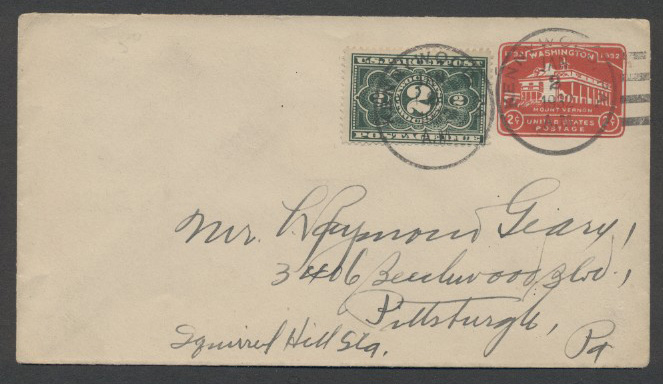 U.S. PARCEL POST
TWO CENTS
2
2
2
POSTAGE DUE
1732 WASHINGTON 1932
MOUNT VERNON
2¢ UNITED STATES 2¢
POSTAGE
2
Mr. L Raymond Geary,
3406 Beechwood Blvd.,
Pittsburgh,
Pa
Squirrel Hill Sta.